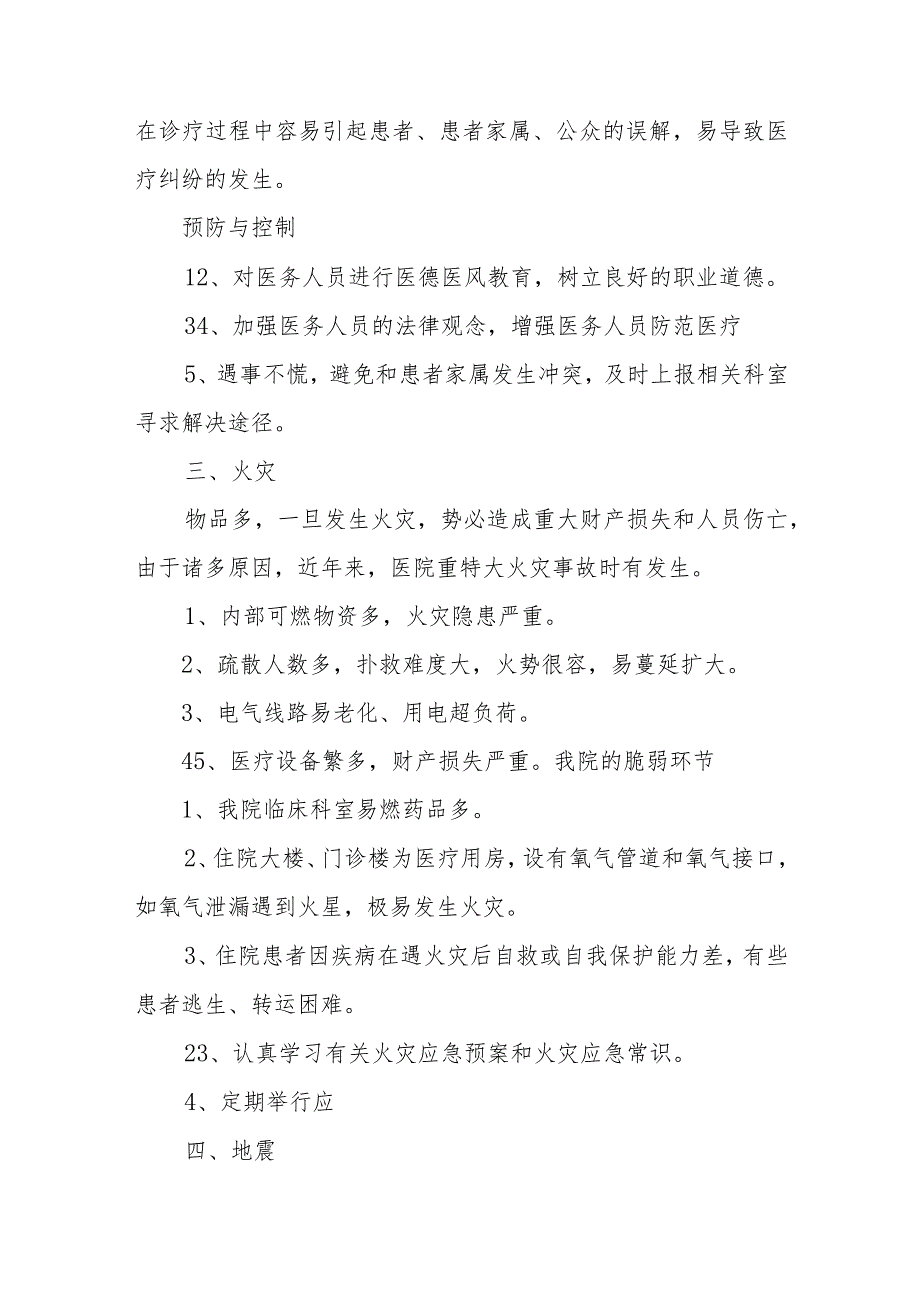 在诊疗过程中容易引起患者、患者家属、公众的误解，易导致医
疗纠纷的发生。
预防与控制
12、对医务人员进行医德医风教育，树立良好的职业道德。
34、加强医务人员的法律观念，增强医务人员防范医疗
5、遇事不慌，避免和患者家属发生冲突，及时上报相关科室
寻求解决途径。
三、火灾
物品多，一旦发生火灾，势必造成重大财产损失和人员伤亡，
由于诸多原因，近年来，医院重特大火灾事故时有发生。
1、内部可燃物资多，火灾隐患严重。
2、疏散人数多，扑救难度大，火势很容，易蔓延扩大。
3、电气线路易老化、用电超负荷。
45、医疗设备繁多，财产损失严重。我院的脆弱环节
1、我院临床科室易燃药品多。
2、住院大楼、门诊楼为医疗用房，设有氧气管道和氧气接口，
如氧气泄漏遇到火星，极易发生火灾。
3、住院患者因疾病在遇火灾后自救或自我保护能力差，有些
患者逃生、转运困难。
23、认真学习有关火灾应急预案和火灾应急常识。
4、定期举行应
四、地震